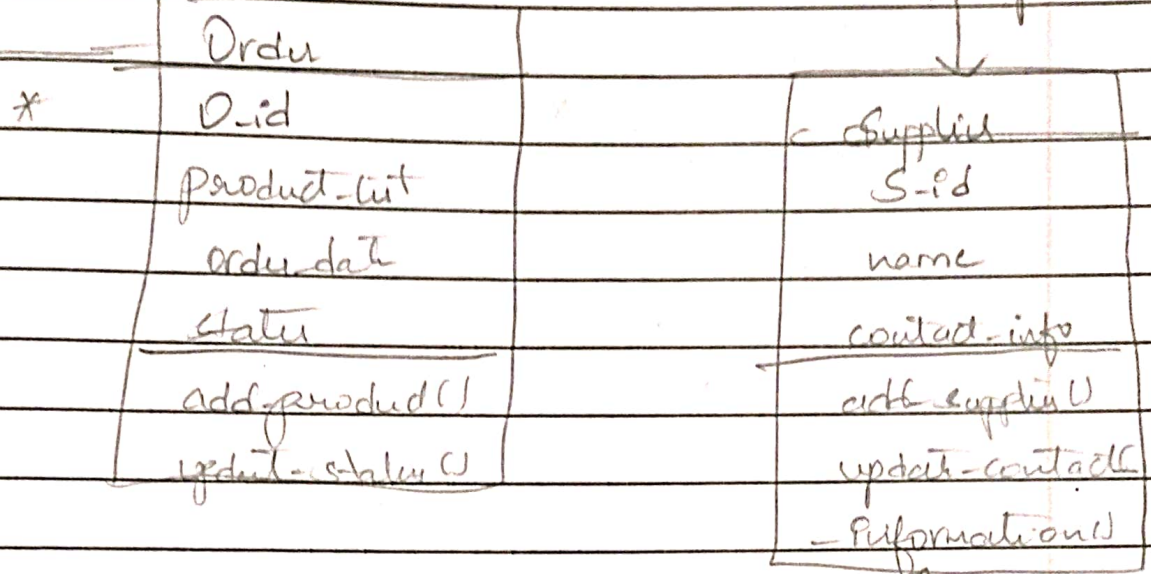 Order
*
O_id
product_list
order_date
status
add_product()
update_status()
Supplier
S_id
name
contact_info
add_supplier()
update_contact
_information()